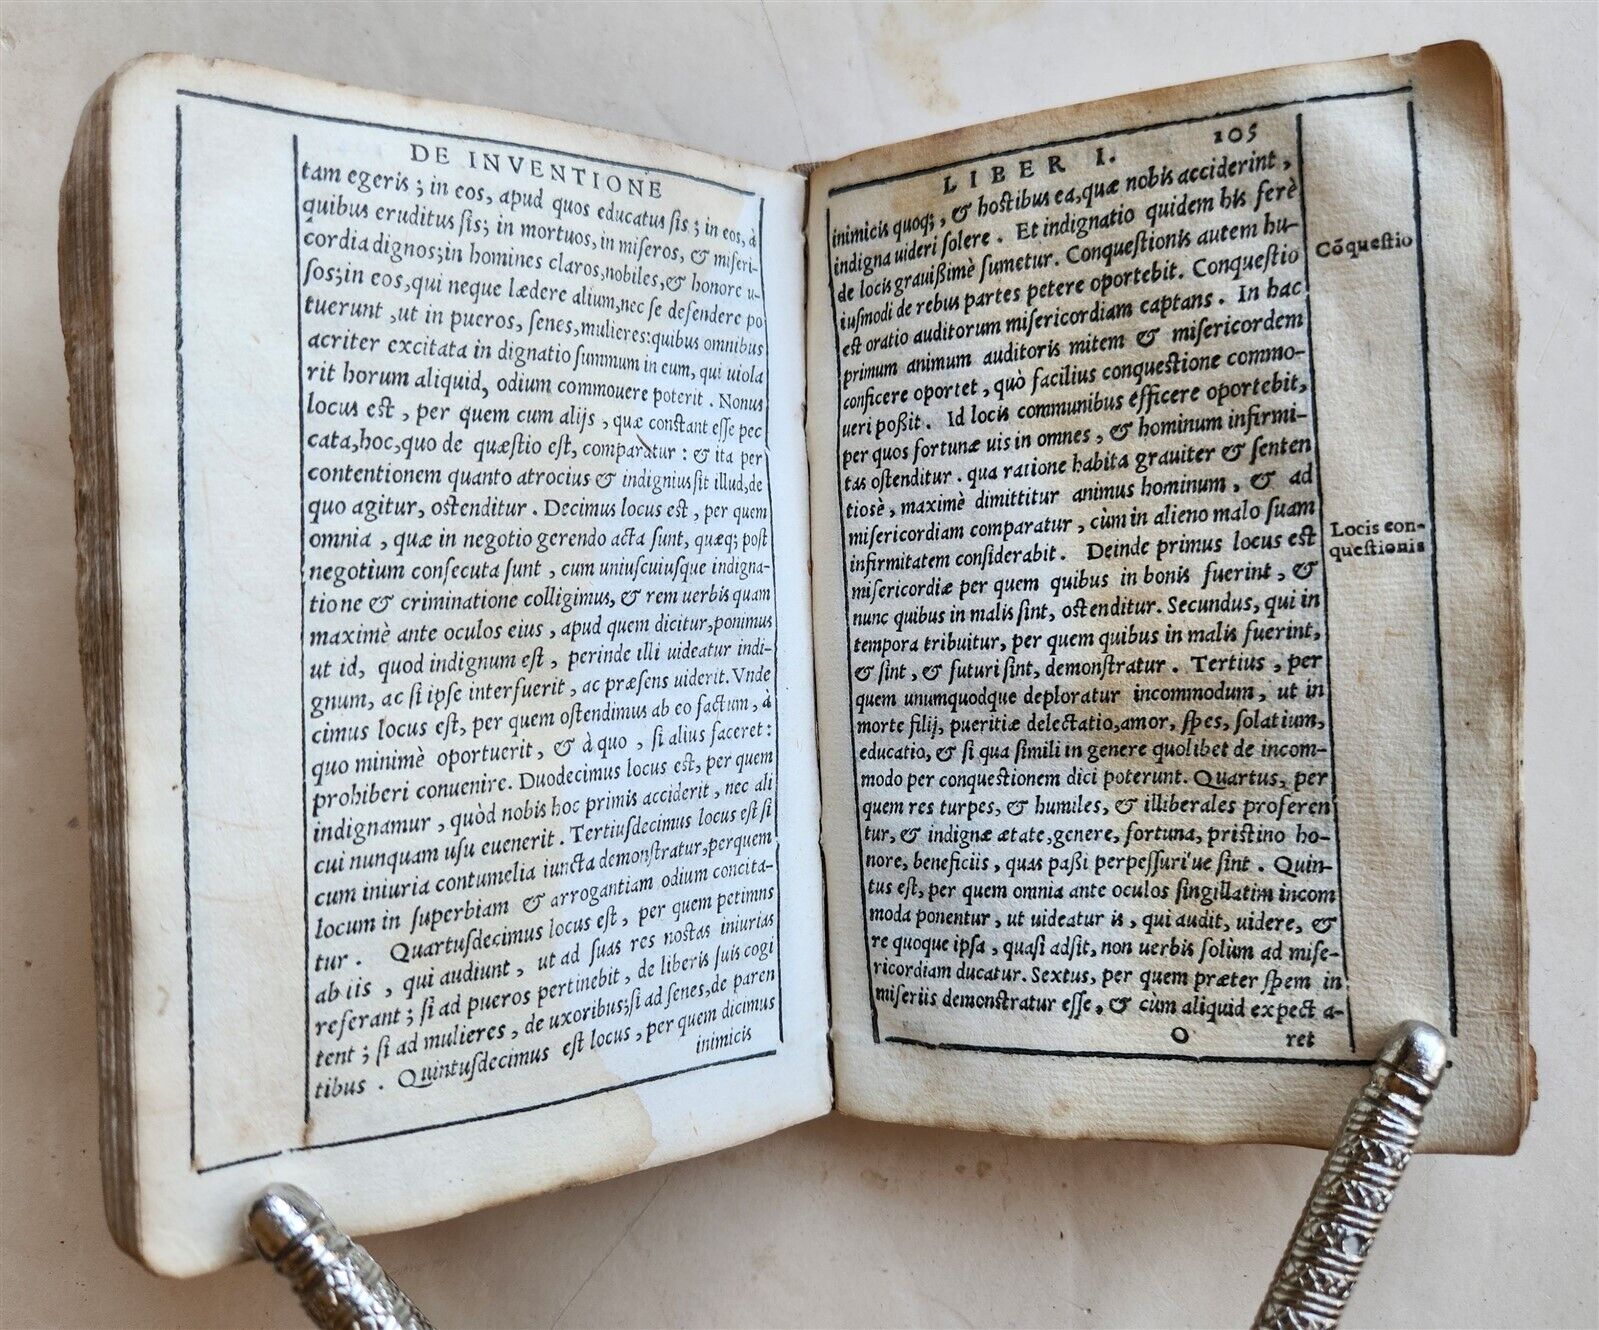 DE INVENTIONE
tam egeris; in eos, apud quos educatus sis; in eos, à
quibus eruditus sis; in mortuos, in miseros, & miseri-
cordia dignos; in homines claros, nobiles, & honore u-
sos; in eos, qui neque lædere alium, nec se defendere po
tuerunt, ut in pueros, senes, mulieres: quibus omnibus
acriter excitata in dignatio summum in eum, qui uiola
rit horum aliquid, odium commouere poterit. Nonus
locus est, per quem cum alijs, quæ constant esse pec
cata, hoc, quo de quæstio est, comparatur: & ita per
contentionem quanto atrocius & indignius sit illud, de
quo agitur, ostenditur. Decimus locus est, per quem
omnia, quæ in negotio gerendo acta sunt, quæq; post
negotium consecuta sunt, cum uniuscuiusque indigna-
tione & criminatione colligimus, & rem uerbis quam
maximè ante oculos eius, apud quem dicitur, ponimus
ut id, quod indignum est, perinde illi uideatur indi-
gnum, ac si ipse interfuerit, ac præsens uiderit. Vnde
cimus locus est, per quem ostendimus ab eo factum, à
quo minimè oportuerit, & à quo, si alius faceret:
prohiberi conuenire. Duodecimus locus est, per quem
indignamur, quòd nobis hoc primis acciderit, nec ali
cui nunquam usu euenerit. Tertiusdecimus locus est si
cum iniuria contumelia iuncta demonstratur, perquem
locum in superbiam & arrogantiam odium concita-
tur. Quartusdecimus locus est, per quem petimns
ab iis, qui audiunt, ut ad suas res nostas iniurias
referant; si ad pueros pertinebit, de liberis suis cogi
tent; si ad mulieres, de uxoribus; si ad senes, de paren
tibus. Quintusdecimus est locus, per quem dicimus
inimicis
LIBER I. 105
inimicis quoq;, & hostibus ea, quæ nobis acciderint,
indigna uideri solere. Et indignatio quidem his ferè
de locis grauißimè sumetur. Conquestionis autem hu-
iusmodi de rebus partes petere oportebit. Conquestio
est oratio auditorum misericordiam captans. In hac
primum animum auditoris mitem & misericordem
conficere oportet, quò facilius conquestione commo-
ueri poßit. Id locis communibus efficere oportebit,
per quos fortunæ uis in omnes, & hominum infirmi-
tas ostenditur. qua ratione habita grauiter & senten
tiosè, maximè dimittitur animus hominum, & ad
misericordiam comparatur, cùm in alieno malo suam
infirmitatem considerabit. Deinde primus locus est
misericordiæ per quem quibus in bonis fuerint, &
nunc quibus in malis sint, ostenditur. Secundus, qui in
tempora tribuitur, per quem quibus in malis fuerint,
& sint, & futuri sint, demonstratur. Tertius, per
quem unumquodque deploratur incommodum, ut in
morte filij, pueritiæ delectatio, amor, spes, solatium,
educatio, & si qua simili in genere quolibet de incom-
modo per conquestionem dici poterunt. Quartus, per
quem res turpes, & humiles, & illiberales proferen
tur, & indignæ ætate, genere, fortuna, pristino ho-
nore, beneficiis, quas paßi perpessuri ue sint. Quin-
tus est, per quem omnia ante oculos singillatim incom
moda ponentur, ut uideatur is, qui audit, uidere, &
re quoque ipsa, quasi adsit, non uerbis solùm ad mise-
ricordiam ducatur. Sextus, per quem præter spem in
miseriis demonstratur esse, & cùm aliquid expecta-
O ret
Cõquestio
Locis con-
questionis